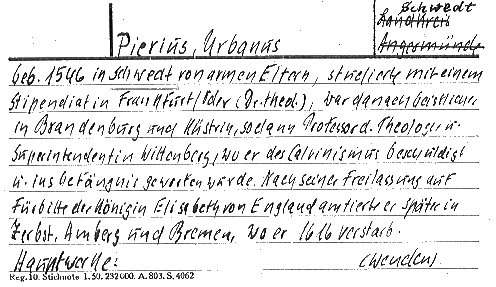 Schwedt
Landkreis
Angermünde
Pierius, Urbanus
geb. 1546 in Schwedt von armen Eltern, studierte mit einem
Stipendiat in Frankfurt/Oder (Dr. theol.), war danach Geistlicher
in Brandenburg und Küstrin, sodann Professor d. Theologie u.
Superintendent in Wittenberg, wo er des Calvinismus beschuldigt
u. ins Gefängnis geworfen wurde. Nach seiner Freilassung auf
Fürbitte der Königin Elisabeth von England amtierte er später in
Zerbst, Amberg und Bremen, wo er 1616 verstarb.
Hauptwerke: (wenden)
Reg. 10. Stichnote 1. 50. 232000. A. 803. S. 4062